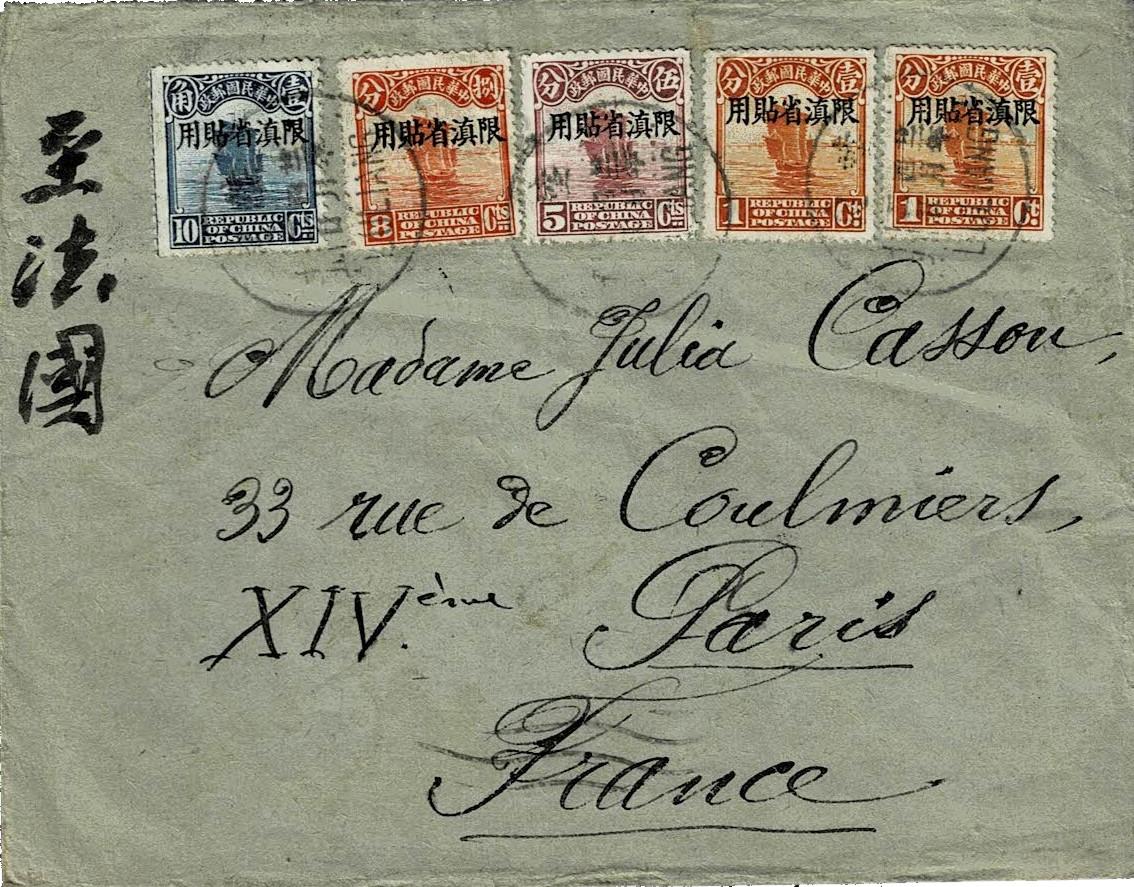 壹角
中華民國郵政
限滇省貼用
REPUBLIC
OF CHINA
10 POSTAGE Cts
捌分
中華民國郵政
限滇省貼用
REPUBLIC
OF CHINA
8 POSTAGE Cts
伍分
中華民國郵政
限滇省貼用
REPUBLIC
OF CHINA
5 POSTAGE Cts
壹分
中華民國郵政
限滇省貼用
REPUBLIC
OF CHINA
1 POSTAGE Ct
壹分
中華民國郵政
限滇省貼用
REPUBLIC
OF CHINA
1 POSTAGE Ct
至法國
Madame Julia Cassou,
33 rue de Coulmiers,
XIV.ème Paris
France